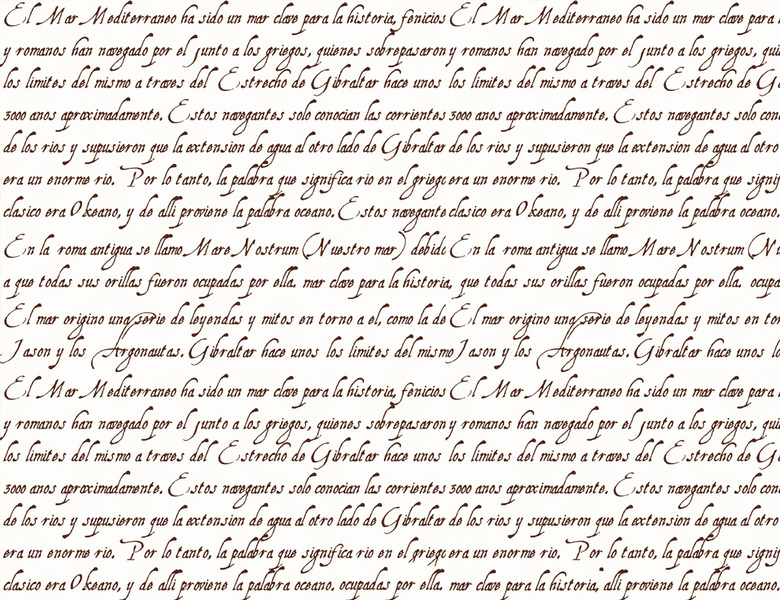 El Mar Mediterraneo ha sido un mar clave para la historia, fenicios El Mar Mediterraneo ha sido un mar clave para la
y romanos han navegado por el junto a los griegos, quienes sobrepasaron y romanos han navegado por el junto a los griegos, qui
los limites del mismo a traves del Estrecho de Gibraltar hace unos los limites del mismo a traves del Estrecho de G
3000 anos aproximadamente. Estos navegantes solo conocian las corrientes 3000 anos aproximadamente. Estos navegantes solo con
de los rios y supusieron que la extension de agua al otro lado de Gibraltar de los rios y supusieron que la extension de agua al otro
era un enorme rio. Por lo tanto, la palabra que significa rio en el griego era un enorme rio. Por lo tanto, la palabra que signif
clasico era Okeano, y de alli proviene la palabra oceano. Estos navegante clasico era Okeano, y de alli proviene la palabra oceano.
En la roma antigua se llamo Mare Nostrum (Nuestro mar) debido En la roma antigua se llamo Mare Nostrum (Nu
a que todas sus orillas fueron ocupadas por ella. mar clave para la historia, que todas sus orillas fueron ocupadas por ella. ocupa
El mar origino una serie de leyendas y mitos en torno a el, como la de El mar origino una serie de leyendas y mitos en tor
Jason y los Argonautas. Gibraltar hace unos los limites del mismo Jason y los Argonautas. Gibraltar hace unos lo
El Mar Mediterraneo ha sido un mar clave para la historia, fenicios El Mar Mediterraneo ha sido un mar clave para la
y romanos han navegado por el junto a los griegos, quienes sobrepasaron y romanos han navegado por el junto a los griegos, qui
los limites del mismo a traves del Estrecho de Gibraltar hace unos los limites del mismo a traves del Estrecho de G
3000 anos aproximadamente. Estos navegantes solo conocian las corrientes 3000 anos aproximadamente. Estos navegantes solo con
de los rios y supusieron que la extension de agua al otro lado de Gibraltar de los rios y supusieron que la extension de agua al otro
era un enorme rio. Por lo tanto, la palabra que significa rio en el griego era un enorme rio. Por lo tanto, la palabra que signif
clasico era Okeano, y de alli proviene la palabra oceano. ocupadas por ella. mar clave para la historia, alli proviene la palabra oceano.